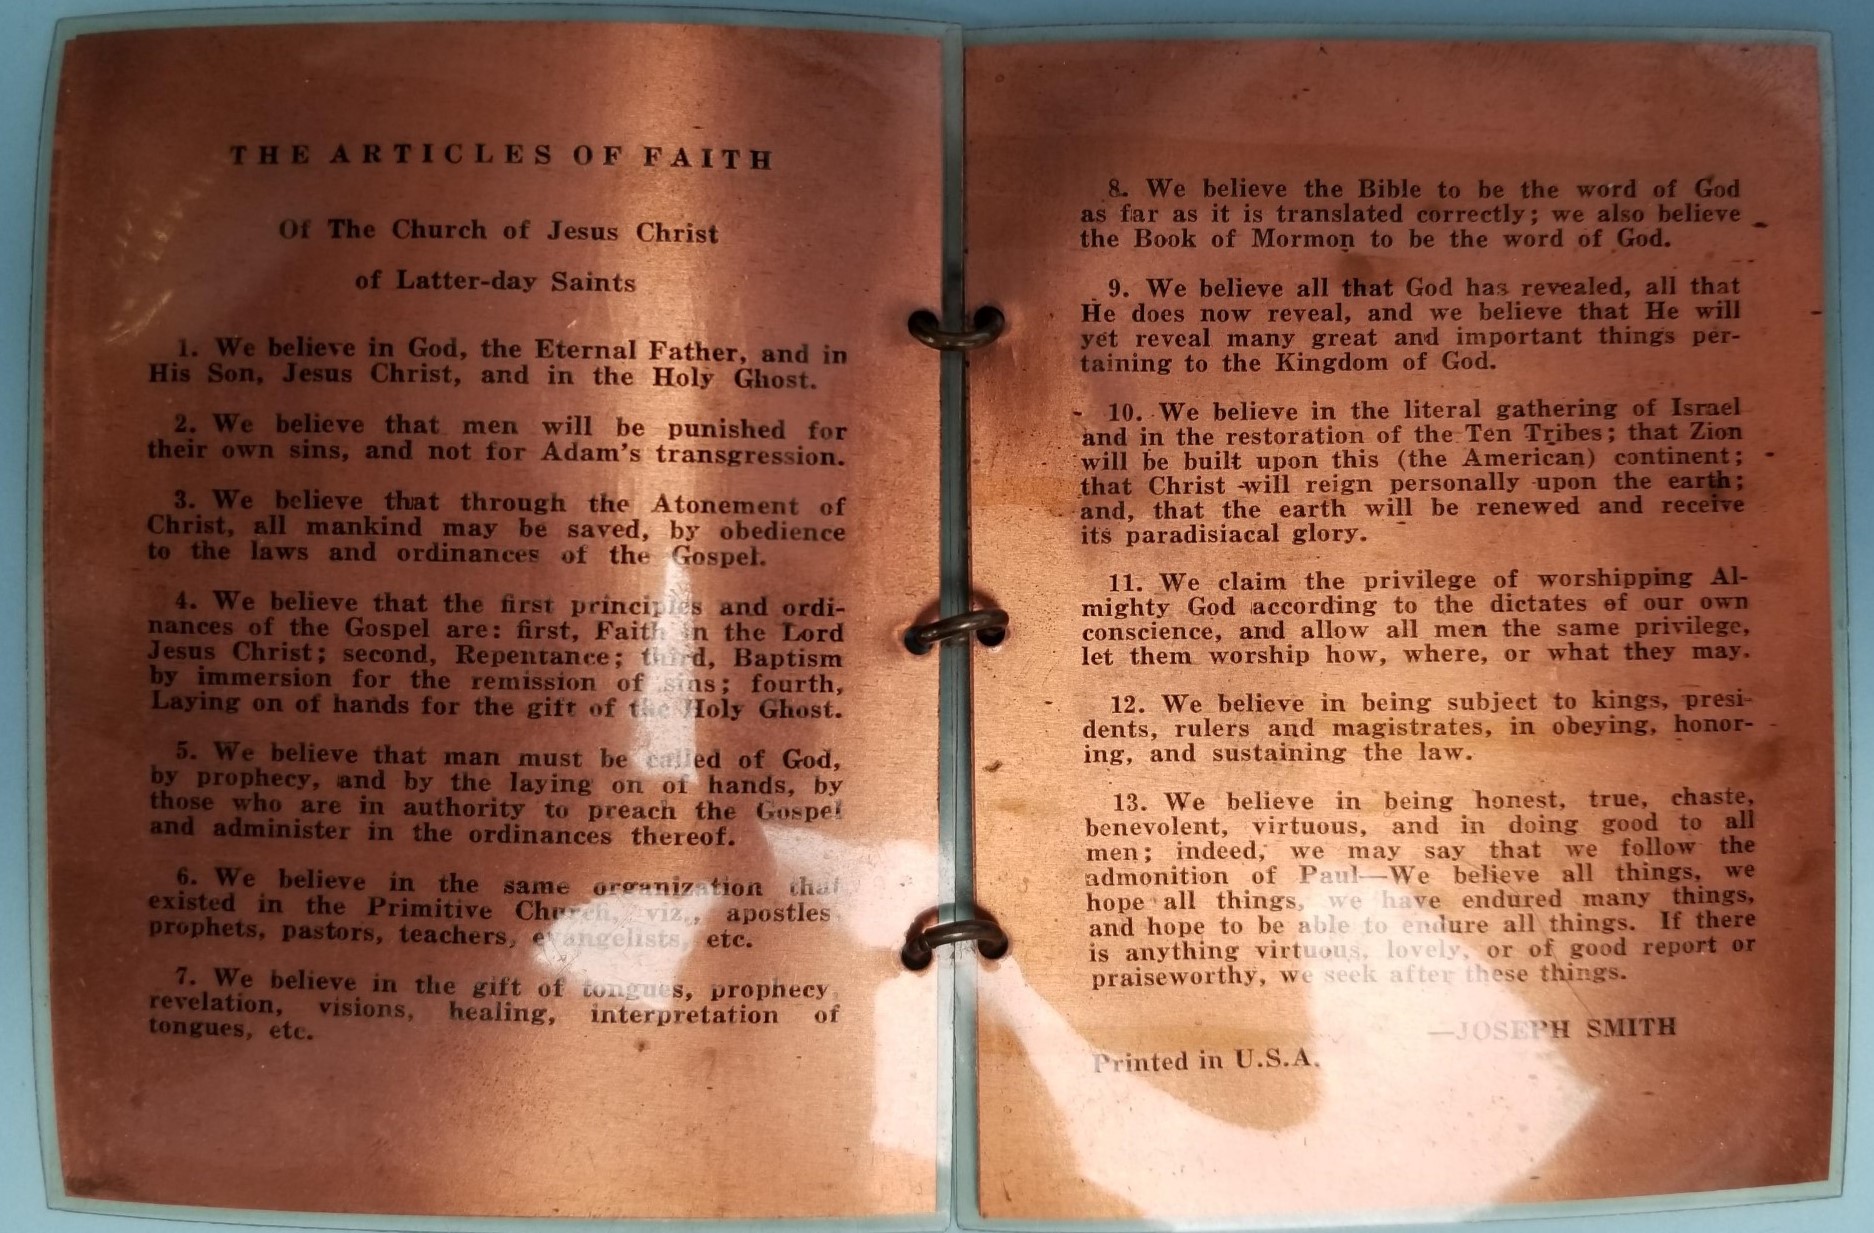 THE ARTICLES OF FAITH
Of The Church of Jesus Christ
of Latter-day Saints
1. We believe in God, the Eternal Father, and in
His Son, Jesus Christ, and in the Holy Ghost.
2. We believe that men will be punished for
their own sins, and not for Adam's transgression.
3. We believe that through the Atonement of
Christ, all mankind may be saved, by obedience
to the laws and ordinances of the Gospel.
4. We believe that the first principles and ordi-
nances of the Gospel are: first, Faith in the Lord
Jesus Christ; second, Repentance; third, Baptism
by immersion for the remission of sins; fourth,
Laying on of hands for the gift of the Holy Ghost.
5. We believe that man must be called of God,
by prophecy, and by the laying on of hands, by
those who are in authority to preach the Gospel
and administer in the ordinances thereof.
6. We believe in the same organization that
existed in the Primitive Church, viz., apostles
prophets, pastors, teachers, evangelists, etc.
7. We believe in the gift of tongues, prophecy,
revelation, visions, healing, interpretation of
tongues, etc.
8. We believe the Bible to be the word of God
as far as it is translated correctly; we also believe
the Book of Mormon to be the word of God.
9. We believe all that God has revealed, all that
He does now reveal, and we believe that He will
yet reveal many great and important things per-
taining to the Kingdom of God.
10. We believe in the literal gathering of Israel
and in the restoration of the Ten Tribes; that Zion
will be built upon this (the American) continent;
that Christ will reign personally upon the earth;
and, that the earth will be renewed and receive
its paradisiacal glory.
11. We claim the privilege of worshipping Al-
mighty God according to the dictates of our own
conscience, and allow all men the same privilege,
let them worship how, where, or what they may.
12. We believe in being subject to kings, presi-
dents, rulers and magistrates, in obeying, honor-
ing, and sustaining the law.
13. We believe in being honest, true, chaste,
benevolent, virtuous, and in doing good to all
men; indeed, we may say that we follow the
admonition of Paul—We believe all things, we
hope all things, we have endured many things,
and hope to be able to endure all things. If there
is anything virtuous, lovely, or of good report or
praiseworthy, we seek after these things.
—JOSEPH SMITH
Printed in U.S.A.